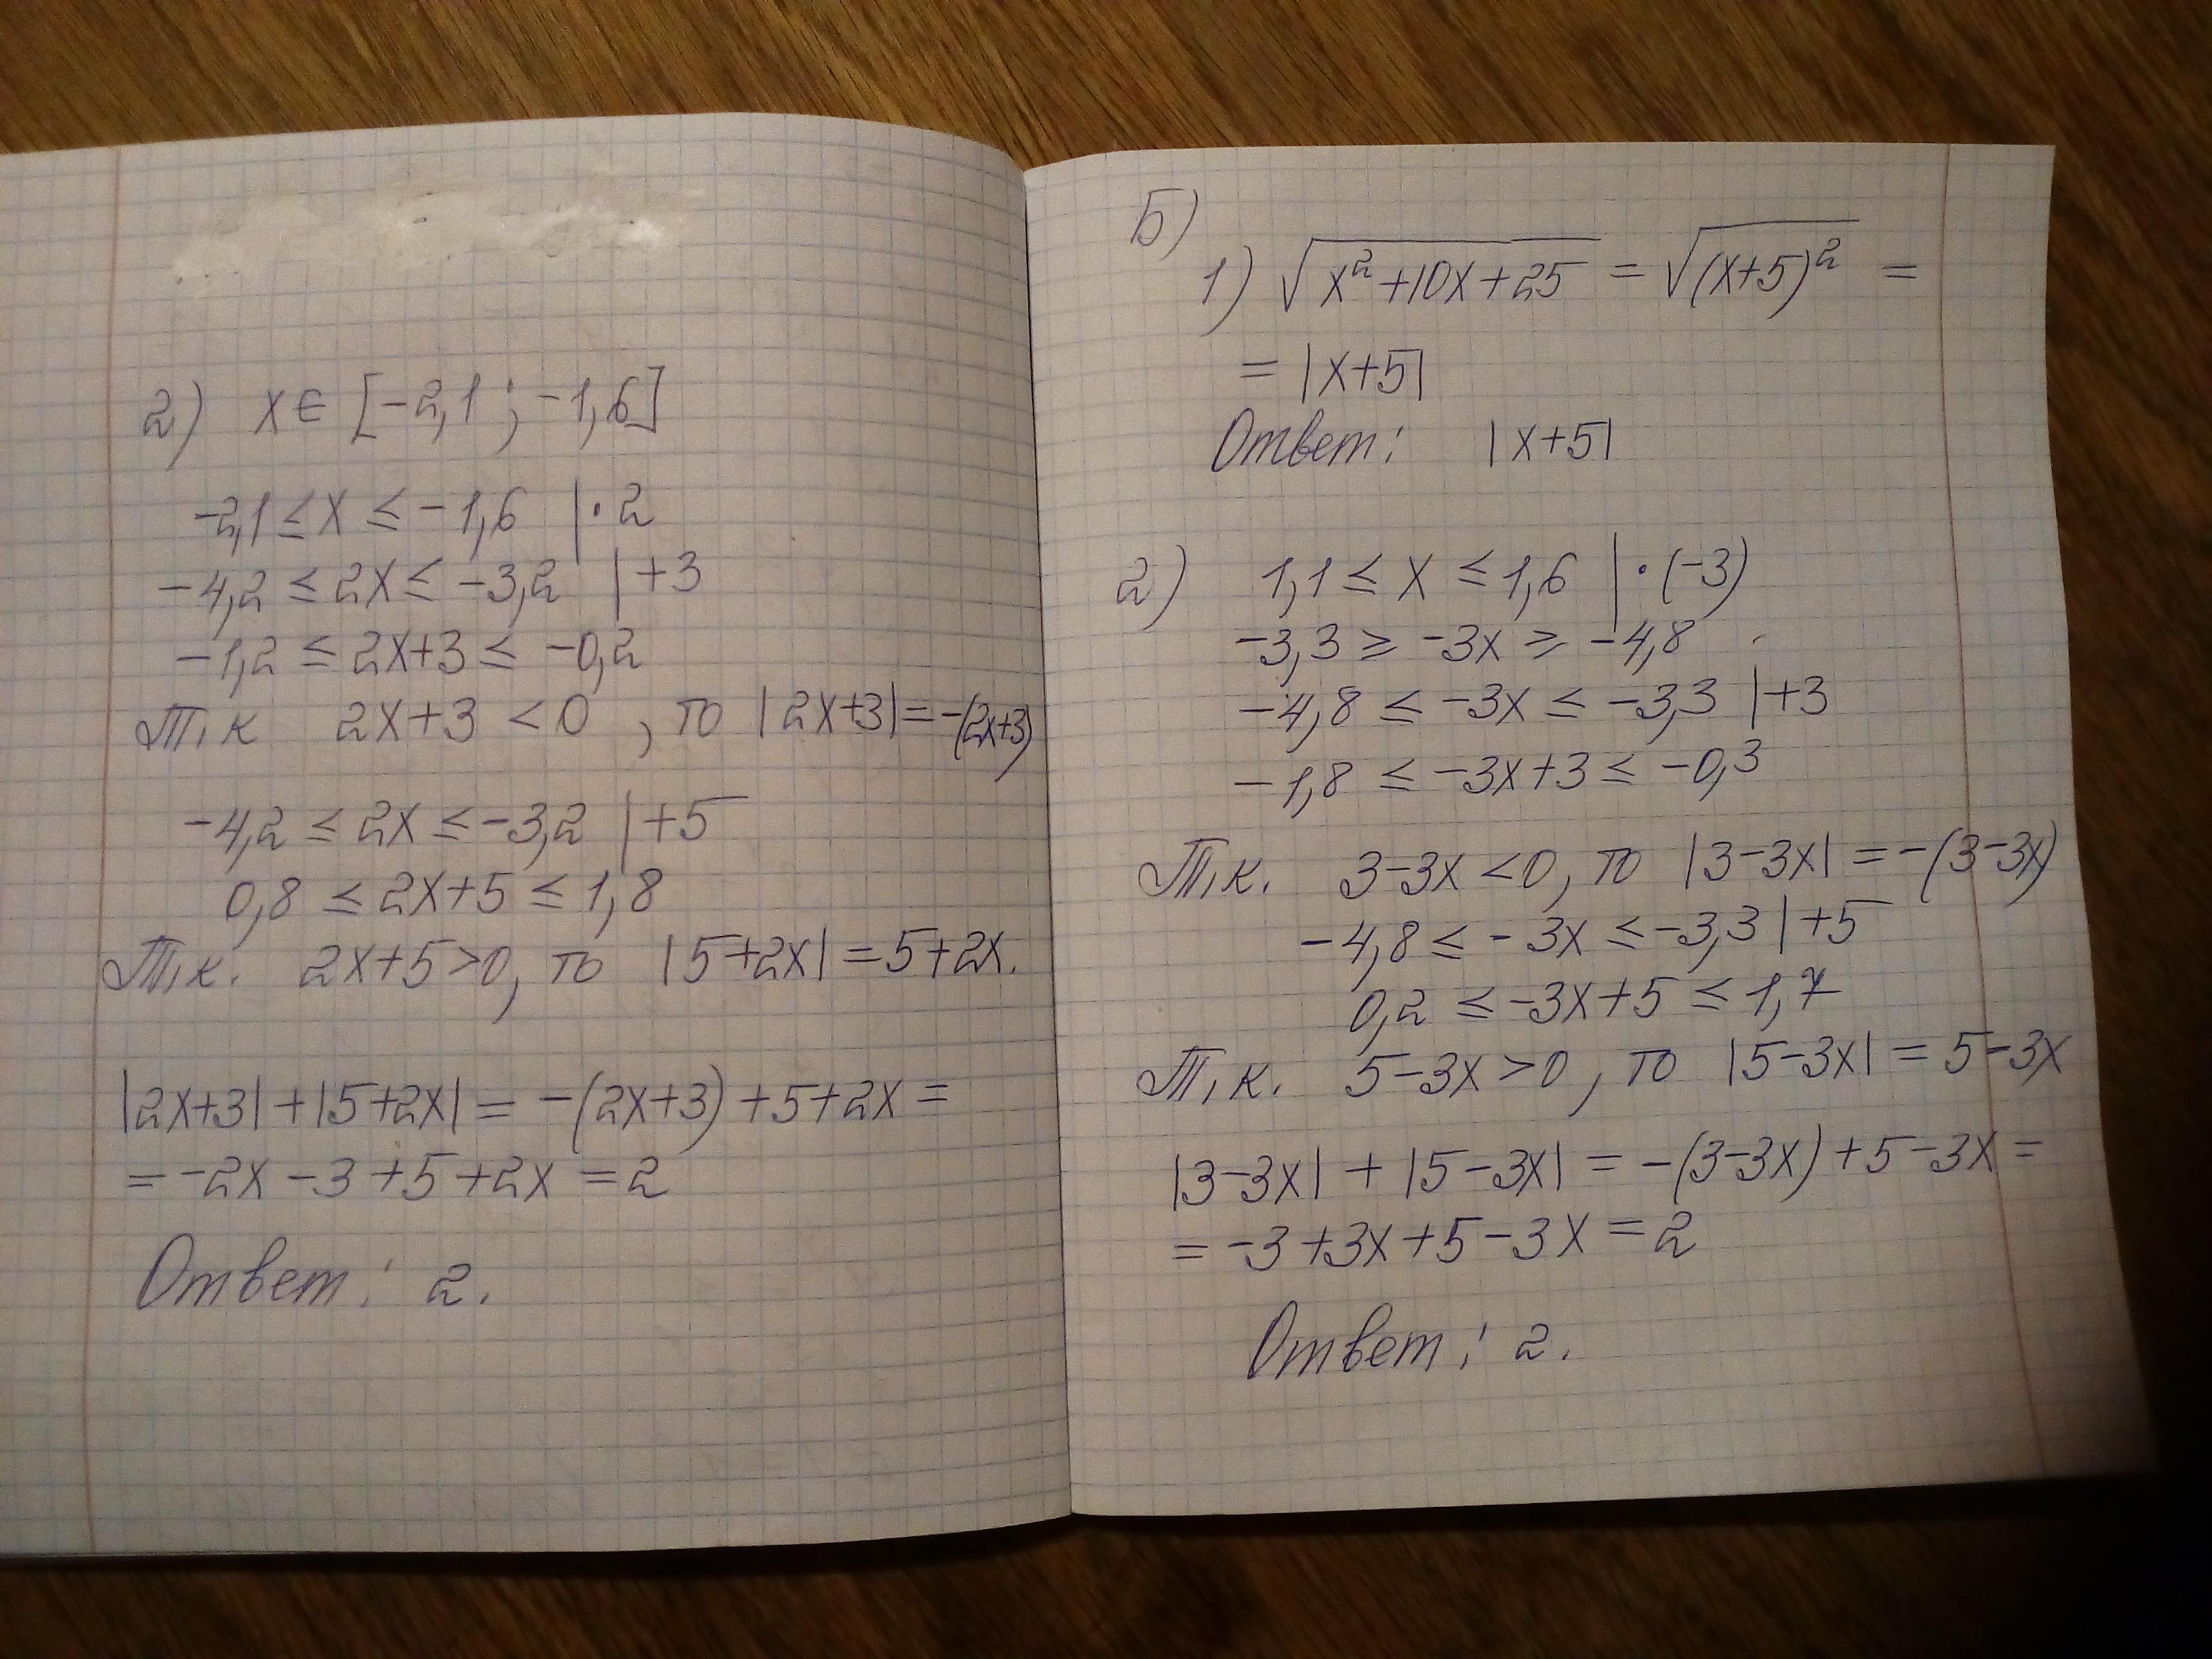 2) x ∈ [-2,1 ; -1,6]
-2,1 ≤ x ≤ -1,6 | · 2
-4,2 ≤ 2x ≤ -3,2 | +3
-1,2 ≤ 2x+3 ≤ -0,2
Т.к 2x+3 < 0 , то |2x+3| = -(2x+3)
-4,2 ≤ 2x ≤ -3,2 | +5
0,8 ≤ 2x+5 ≤ 1,8
Т.к. 2x+5 > 0, то |5+2x| = 5+2x.
|2x+3| + |5+2x| = -(2x+3) + 5+2x =
= -2x - 3 + 5 + 2x = 2
Ответ: 2.
Б)
1) √(x²+10x+25) = √((x+5)²) =
= |x+5|
Ответ: |x+5|
2) 1,1 ≤ x ≤ 1,6 | · (-3)
-3,3 ≥ -3x ≥ -4,8
-4,8 ≤ -3x ≤ -3,3 | +3
-1,8 ≤ -3x+3 ≤ -0,3
Т.к. 3-3x < 0, то |3-3x| = -(3-3x)
-4,8 ≤ -3x ≤ -3,3 | +5
0,2 ≤ -3x+5 ≤ 1,7
Т.к. 5-3x > 0, то |5-3x| = 5-3x
|3-3x| + |5-3x| = -(3-3x) + 5-3x =
= -3+3x+5-3x = 2
Ответ: 2.